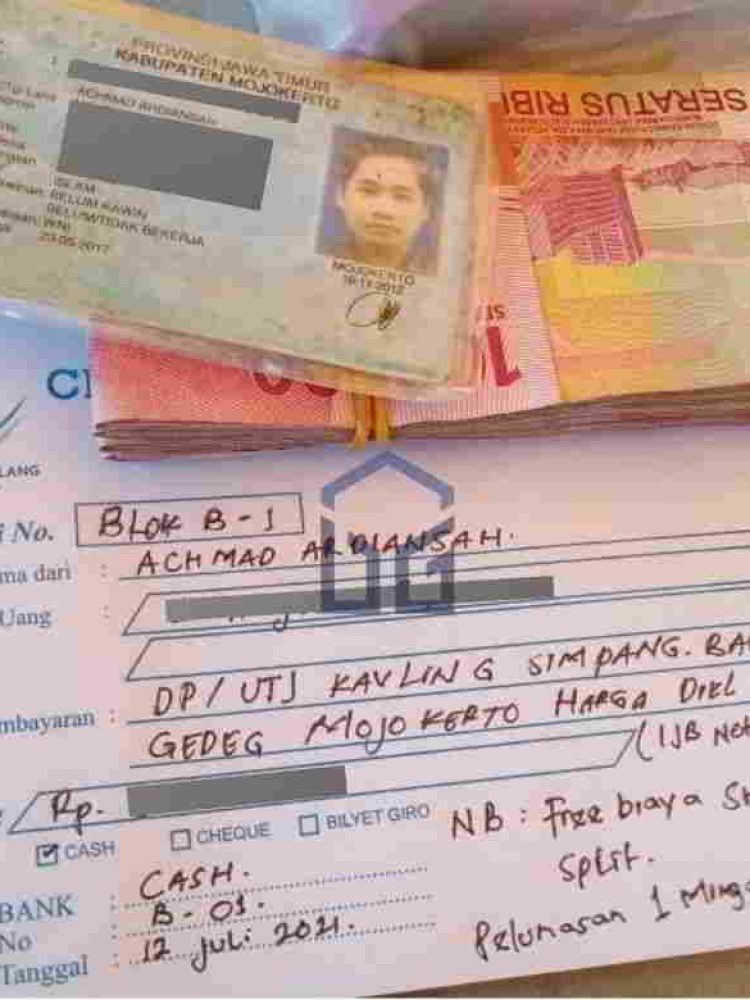 PROVINSI JAWA TIMUR
KABUPATEN MOJOKERTO
ACHMAD ARDIANSAH
ISLAM
BELUM KAWIN
BELUM/TIDAK BEKERJA
WNI
23-05-2017
MOJOKERTO
18-11-2012
SERATUS RIBU
LANG
No. BLOK B-1
ma dari : ACHMAD ARDIANSAH.
Uang :
mbayaran : DP/UTJ KAVLING SIMPANG. BA
GEDEG MOJOKERTO HARGA
(IJB
Rp.
CASH CHEQUE BILYET GIRO
NB : Free biaya
Split.
Pelunasan 1
BANK : CASH.
No : B-01.
Tanggal : 12 juli 2021.
UG